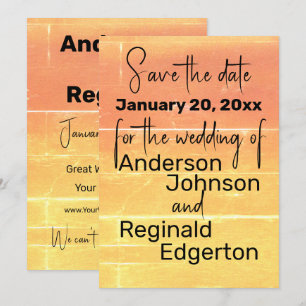 Save the date
January 20, 20xx
for the wedding of
Anderson
Johnson
and
Reginald
Edgerton
And
Reg
January
Great W
Your
www.Your
We can't